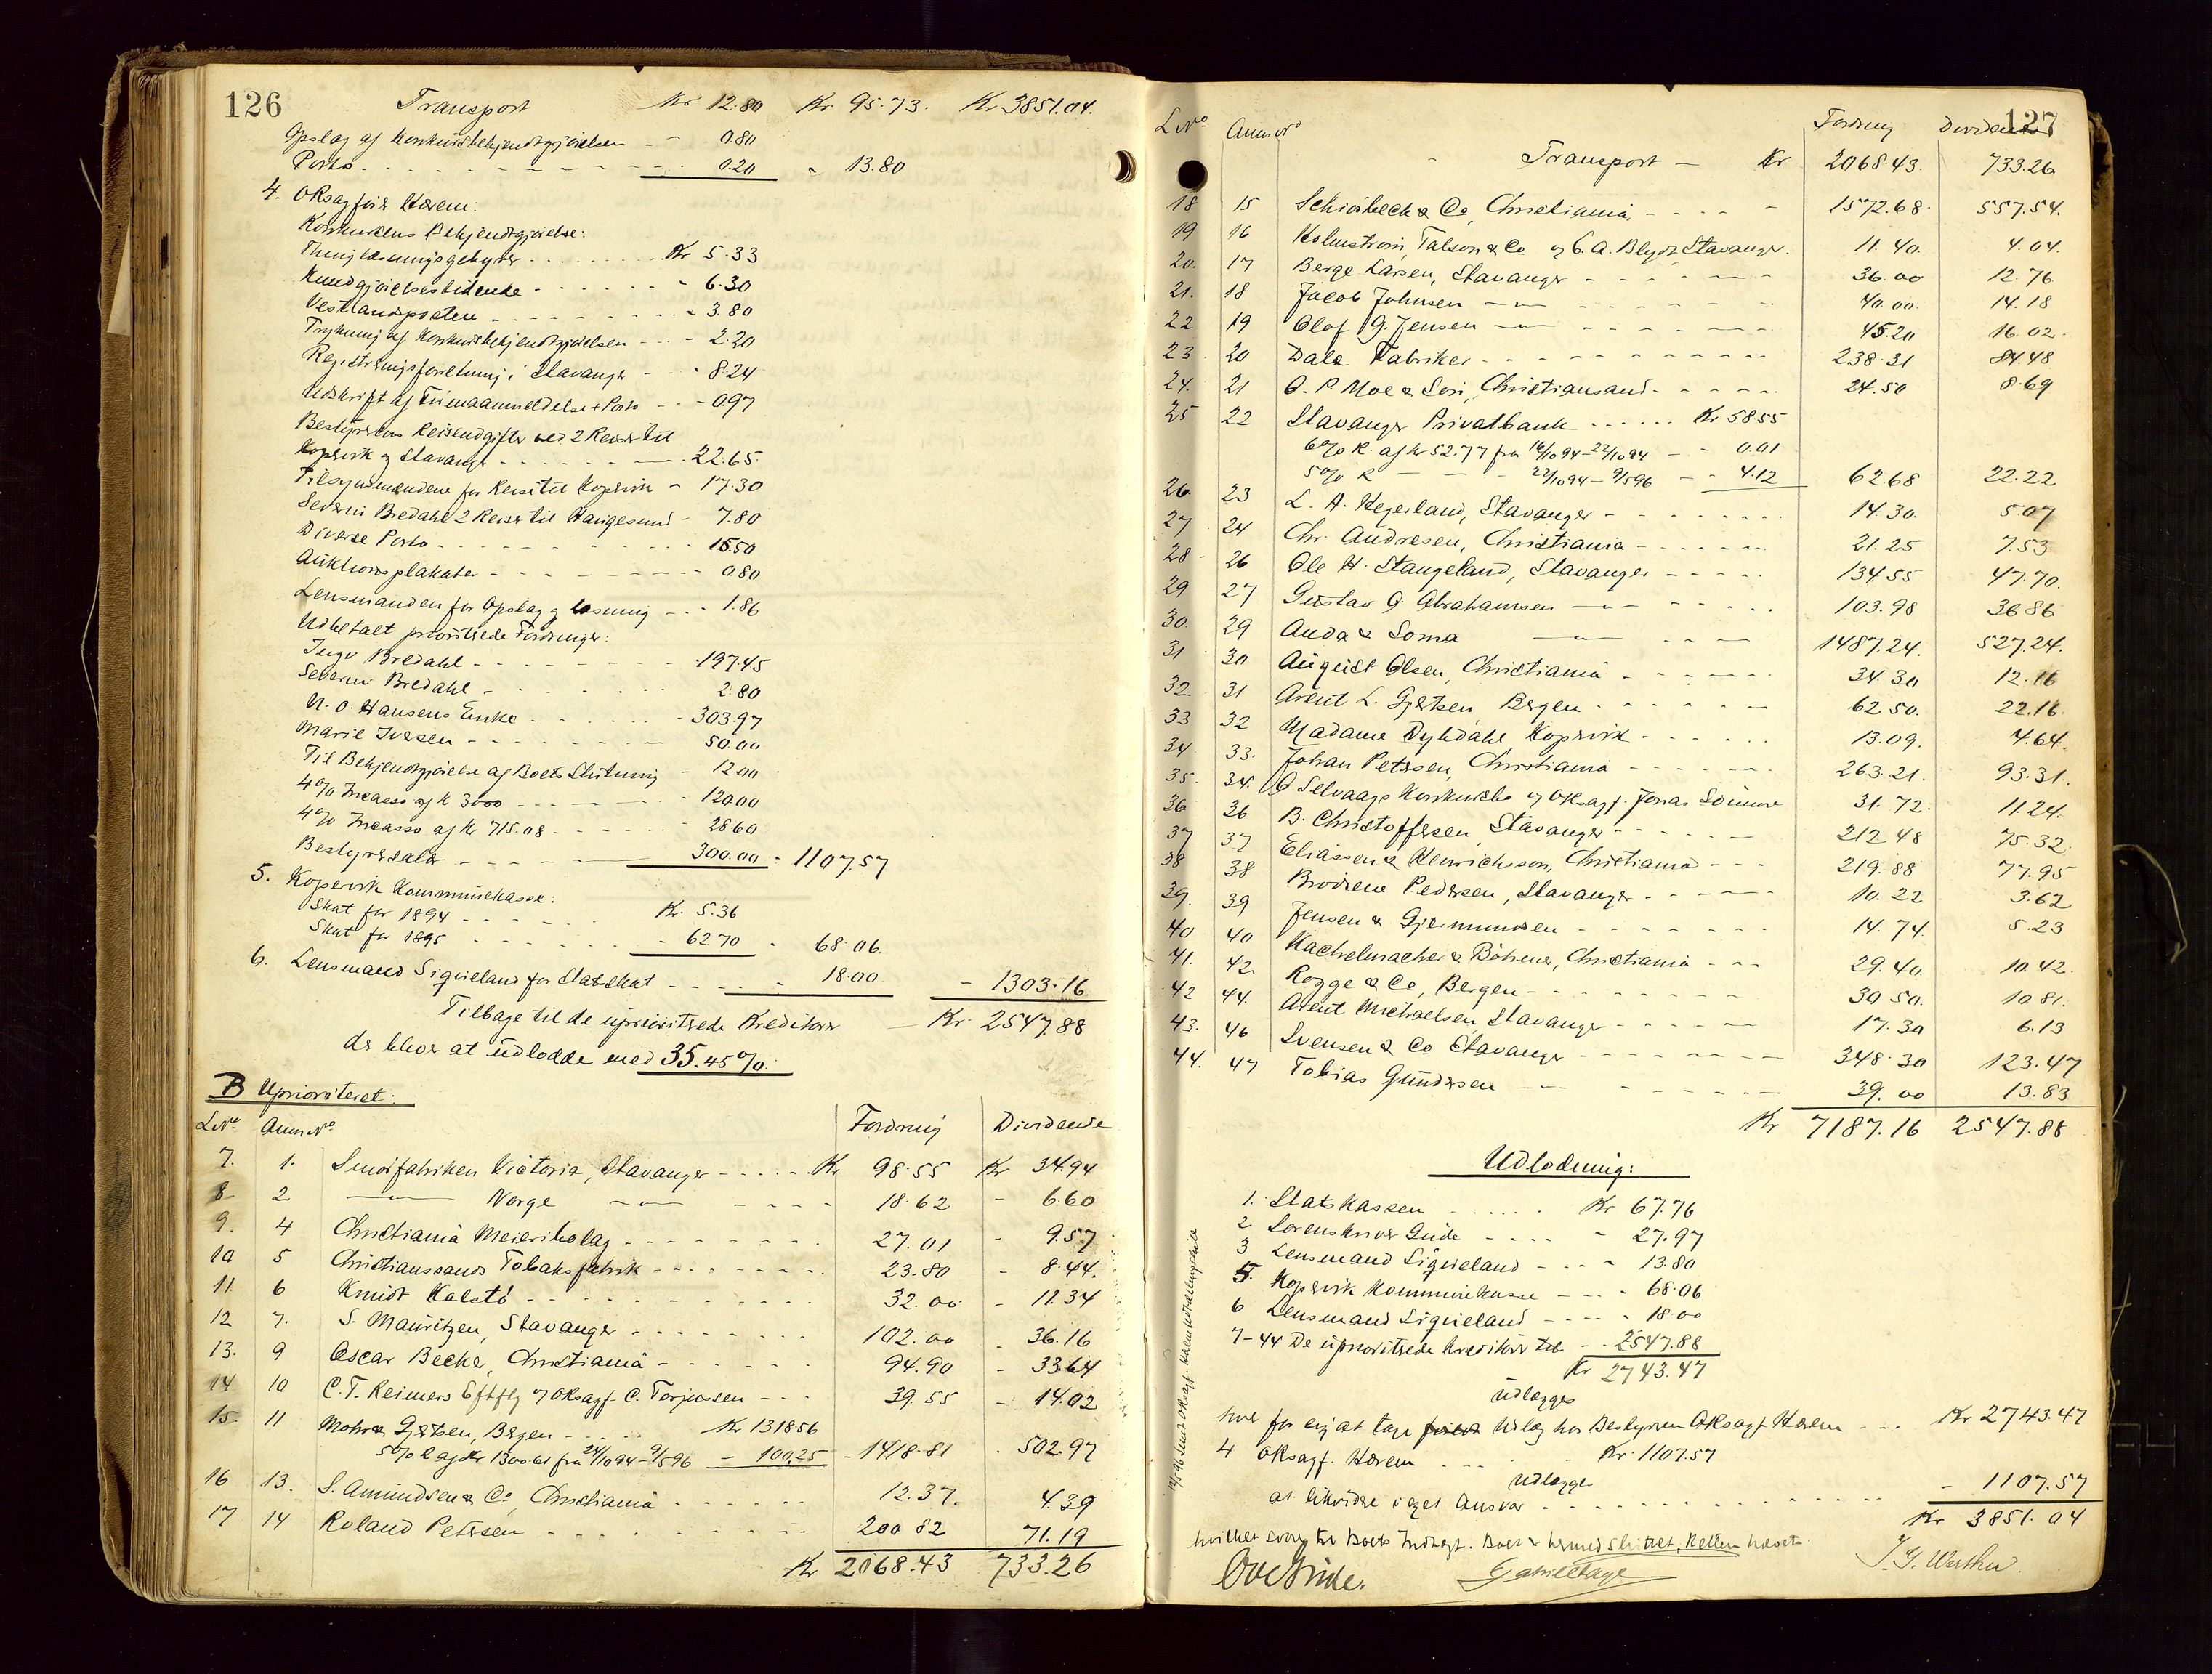 126
Transport Kr 12.80 Kr. 95.73. Kr 3851.04.
Opslag af Konkursbekjendtgjörelsen - 0.80
Porto 0.20 - 13.80
4. ORsagförer Hærem:
Konkursens Bekjendtgjörelse:
Thinglæsningsgebyrer Kr 5.33
Kundgjörelsestidende - 6.30
Vestlandsposten - 3.80
Trykning af Konkursbekjendtgjörelsen - 2.20
Registreringsforretning i Stavanger - 8.24
Udskrift af Firmaanmeldelse + Porto - 0.97
Bestyrerens Reiseudgifter ved 2 Reiser til
Kopervik og Stavanger - 22.65
Tilsynsmændene for Reise til Kopervik - 17.30
Severin Bredahl 2 Reiser til Haugesund - 7.80
Diverse Porto - 15.50
Auktionsplakater - 0.80
Lensmanden for Opslag og læsning - 1.86
Udbetalt prioriterede Fordringer:
Ingv Bredahl - 197.45
Severin Bredahl - 2.80
N. O. Hansens Enke - 303.97
Marie Iversen - 50.00
Til Bekjendtgjörelse af Boets Slutning - 12.00
4% Incasso af K 3000 - 120.00
4% Incasso af Kr. 715.08 - 28.60
Bestyrersalær 300.00 - 1107.57
5. Kopervik Kommunekasse:
Skat for 1894 Kr. 5.36
Skat for 1895 - 62.70 - 68.06.
6. Lensmand Sigveland for Statsskat - 18.00 - 1303.16
Tilbage til de uprioriterede Kreditorer - Kr. 2547.88
der bliver at udlodde med 35.45%.
B Uprioriteret:
LNo AnmNo Fordring Dividende
7. 1. Smörfabriken Victoria, Stavanger Kr 98.55 Kr 34.94
8 2 -"- Norge -"- 18.62 - 6.60
9. 4 Christiania Meieribolag 27.01 - 9.57
10 5 Christianssands Tobaksfabrik 23.80 - 8.44.
11. 6 Knudt Kalstö 32.00 - 11.34
12 7. S. Mauritzen, Stavanger 102.00 - 36.16
13. 9 Oscar Becke, Christiania 94.90 - 33.64
14 10 C. T. Reimers Eftflg v/ ORsagf. C. Torjusen 39.55 - 14.02
15. 11 Mohr & Gjertsen, Bergen Kr 1318.56
5% R af Kr 1300.61 fra 24/10 94 - 9/5 96 - 100.25 - 1418.81 - 502.97
16 13. S. Amundsen & Co, Christiania 12.37. 4.39
17 14 Roland Petersen 200.82 71.19
Kr 2068.43 733.26
127
LNo AnmNo Fordring Dividende
Transport - Kr 2068.43. 733.26
18 15 Schiörbeck & Co, Christiania 1572.68 557.54.
19 16 Holmström, Talson & Co v/ C. A. Blydt Stavanger. 11.40. 4.04.
20. 17 Berge Larsen, Stavanger 36.00 12.76
21. 18 Jacob Johnsen -"- 40.00. 14.18
22 19 Olaf G. Jensen -"- 45.20 16.02.
23. 20 Dale Fabriker 238.31 84.48
24. 21 O. P. Moe & Sön, Christiansand 24.50 8.69
25 22 Stavanger Privatbank Kr 58.55
6% R. af Kr 52.77 fra 16/10 94 - 22/10 94 - 0.01
5% R - 22/10 94 - 9/5 96 - 4.12 62.68 22.22
26. 23 L. A. Hegerland, Stavanger 14.30. 5.07
27 24 Chr. Andresen, Christiania 21.25 7.53
28 26 Ole H. Stangeland, Stavanger 134.55 47.70.
29 27 Gustav G. Abrahamsen -"- 103.98 36.86
30. 29 Anda & Soma -"- 1487.24. 527.24.
31 30 August Olsen, Christiania 34.30 12.16
32. 31 Arent L. Gjertsen, Bergen 62.50. 22.16
33 32 Madame Dybdahl Kopervik 13.09. 4.64.
34 33. Johan Petersen, Christiania 263.21. 93.31.
35. 34. O Selvaags Konkursbo v/ ORsagf. Jonas Sömme 31.72. 11.24.
36 36 B. Christoffersen, Stavanger 212.48 75.32.
37 37 Eliassen & Henrichsen, Christiania 219.88 77.95
38 38 Brödrene Pedersen, Stavanger 10.22 3.62
39. 39 Jensen & Gjermundsen 14.74. 5.23
40 40 Kachelmacher & Böhmer, Christiania 29.40. 10.42.
41. 42 Rogge & Co, Bergen 30.50. 10.81.
42 44. Arent Michaelsen, Stavanger 17.30 6.13
43. 46 Svensen & Co Stavanger 348.30 123.47
44. 47 Tobias Gundersen -"- 39.00 13.83
Kr 7187.16 2547.88
Udlodning:
1. Statskassen Kr 67.76
2 Sorenskriver Gude - 27.97
3 Lensmand Sigveland - 13.80
5. Kopervik Kommunekasse - 68.06
6 Lensmand Sigveland - 18.00
7-44 De uprioriterede Kreditorer til - 2547.88
Kr 2743.47
udlægges
hver for sig at tage Udlæg hos Bestyreren ORsagf. Hærem Kr 2743.47
4 ORsagf. Hærem Kr. 1107.57
udlægges
at likvidere i eget Ansvar - 1107.57
Kr 3851.04
hvilket svarer til Boets Indtægt. Boet er hermed sluttet, Retten hævet.
Ove Gude.